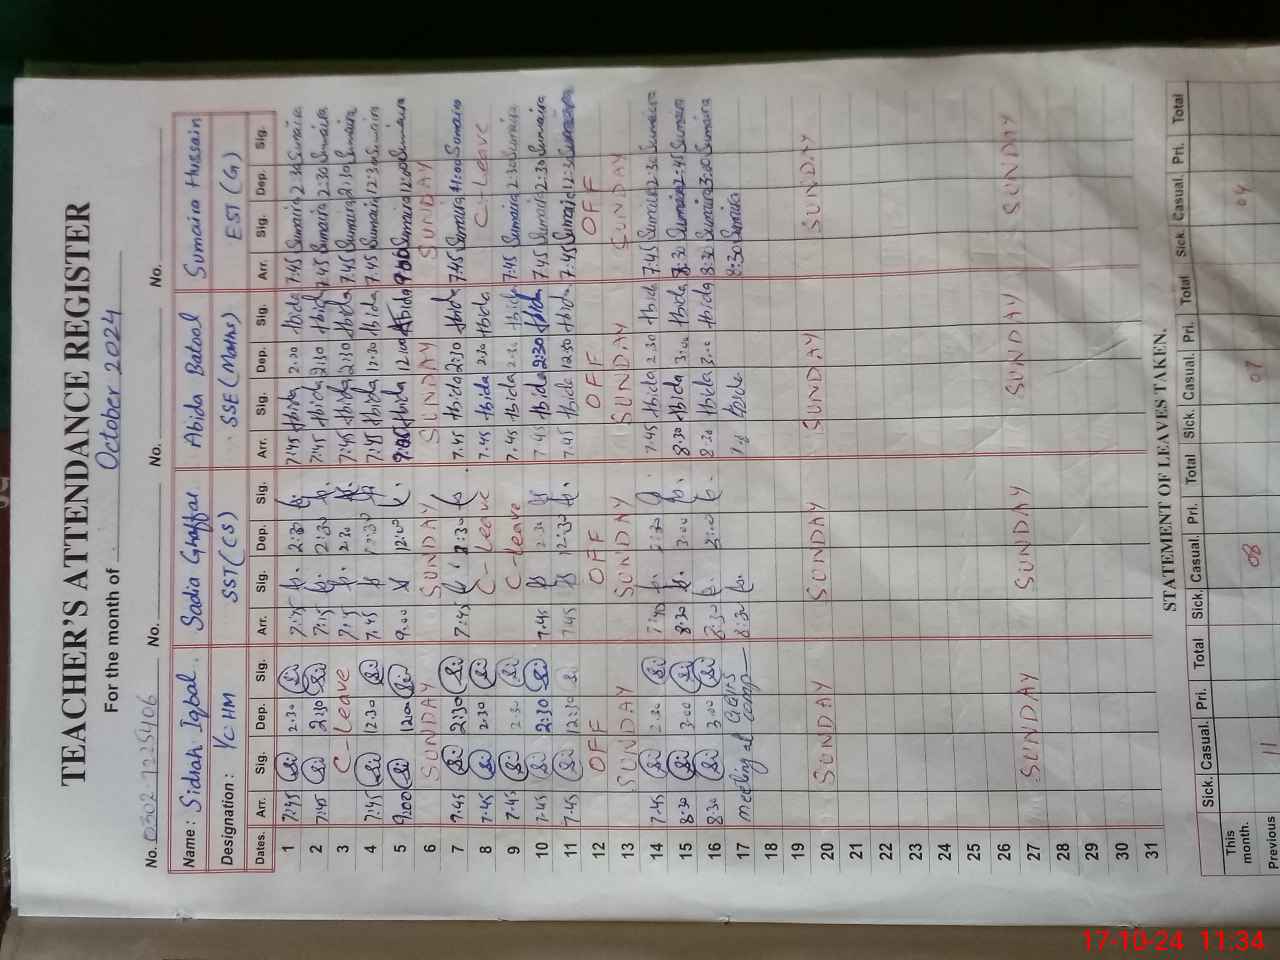 TEACHER'S ATTENDANCE REGISTER
For the month of October 2024
No. 0302-7225406 No. No. No.
Name: Sidrah Iqbal. Sadia Ghaffar Abida Batool Sumaira Hussain
Designation: I/C HM SST(CS) SSE (Maths) EST (G)
Dates. Arr. Sig. Dep. Sig. Arr. Sig. Dep. Sig. Arr. Sig. Dep. Sig. Arr. Sig. Dep. Sig.
1 7:45 2:30 7:45 2:30 7:45 Abida 2:30 Abida 7:45 Sumaira 2:30 Sumaira
2 7:45 2:30 7:45 2:30 7:45 Abida 2:30 Abida 7:45 Sumaira 2:30 Sumaira
3 C-Leave 7:45 2:30 7:45 Abida 2:30 Abida 7:45 Sumaira 2:30 Sumaira
4 7:45 12:30 7:45 12:30 7:45 Abida 12:30 Abida 7:45 Sumaira 12:30 Sumaira
5 9:00 12:00 9:00 12:00 9:00 Abida 12:00 Abida 9:00 Sumaira 12:00 Sumaira
6 SUNDAY SUNDAY SUNDAY SUNDAY
7 7:45 2:30 7:45 2:30 7:45 Abida 2:30 Abida 7:45 Sumaira 1:00 Sumaira
8 7:45 2:30 C-Leave 7:45 Abida 2:30 Abida C-Leave
9 7:45 2:30 C-Leave 7:45 Abida 2:30 Abida 7:45 Sumaira 2:30 Sumaira
10 7:45 2:30 7:45 2:30 7:45 Abida 2:30 Abida 7:45 Sumaira 2:30 Sumaira
11 7:45 12:30 7:45 12:30 7:45 Abida 12:30 Abida 7:45 Sumaira 12:30 Sumaira
12 OFF OFF OFF OFF
13 SUNDAY SUNDAY SUNDAY SUNDAY
14 7:45 2:30 2:30 7:45 Abida 2:30 Abida 7:45 Sumaira 2:30 Sumaira
15 8:30 3:00 8:30 3:00 8:30 Abida 3:00 Abida 8:30 Sumaira 2:45 Sumaira
16 8:30 3:00 8:30 3:00 8:30 Abida 3:00 Abida 8:30 Sumaira 3:00 Sumaira
17 meeting at 8:30 Abida 8:30 Sumaira
18
19
20 SUNDAY SUNDAY SUNDAY SUNDAY
21
22
23
24
25
26
27 SUNDAY SUNDAY SUNDAY SUNDAY
28
29
30
31
STATEMENT OF LEAVES TAKEN.
Sick. Casual. Pri. Total Sick. Casual. Pri. Total Sick. Casual. Pri. Total Sick. Casual. Pri. Total
This month. 11 08 07 04
Previous
17-10-24 11:34